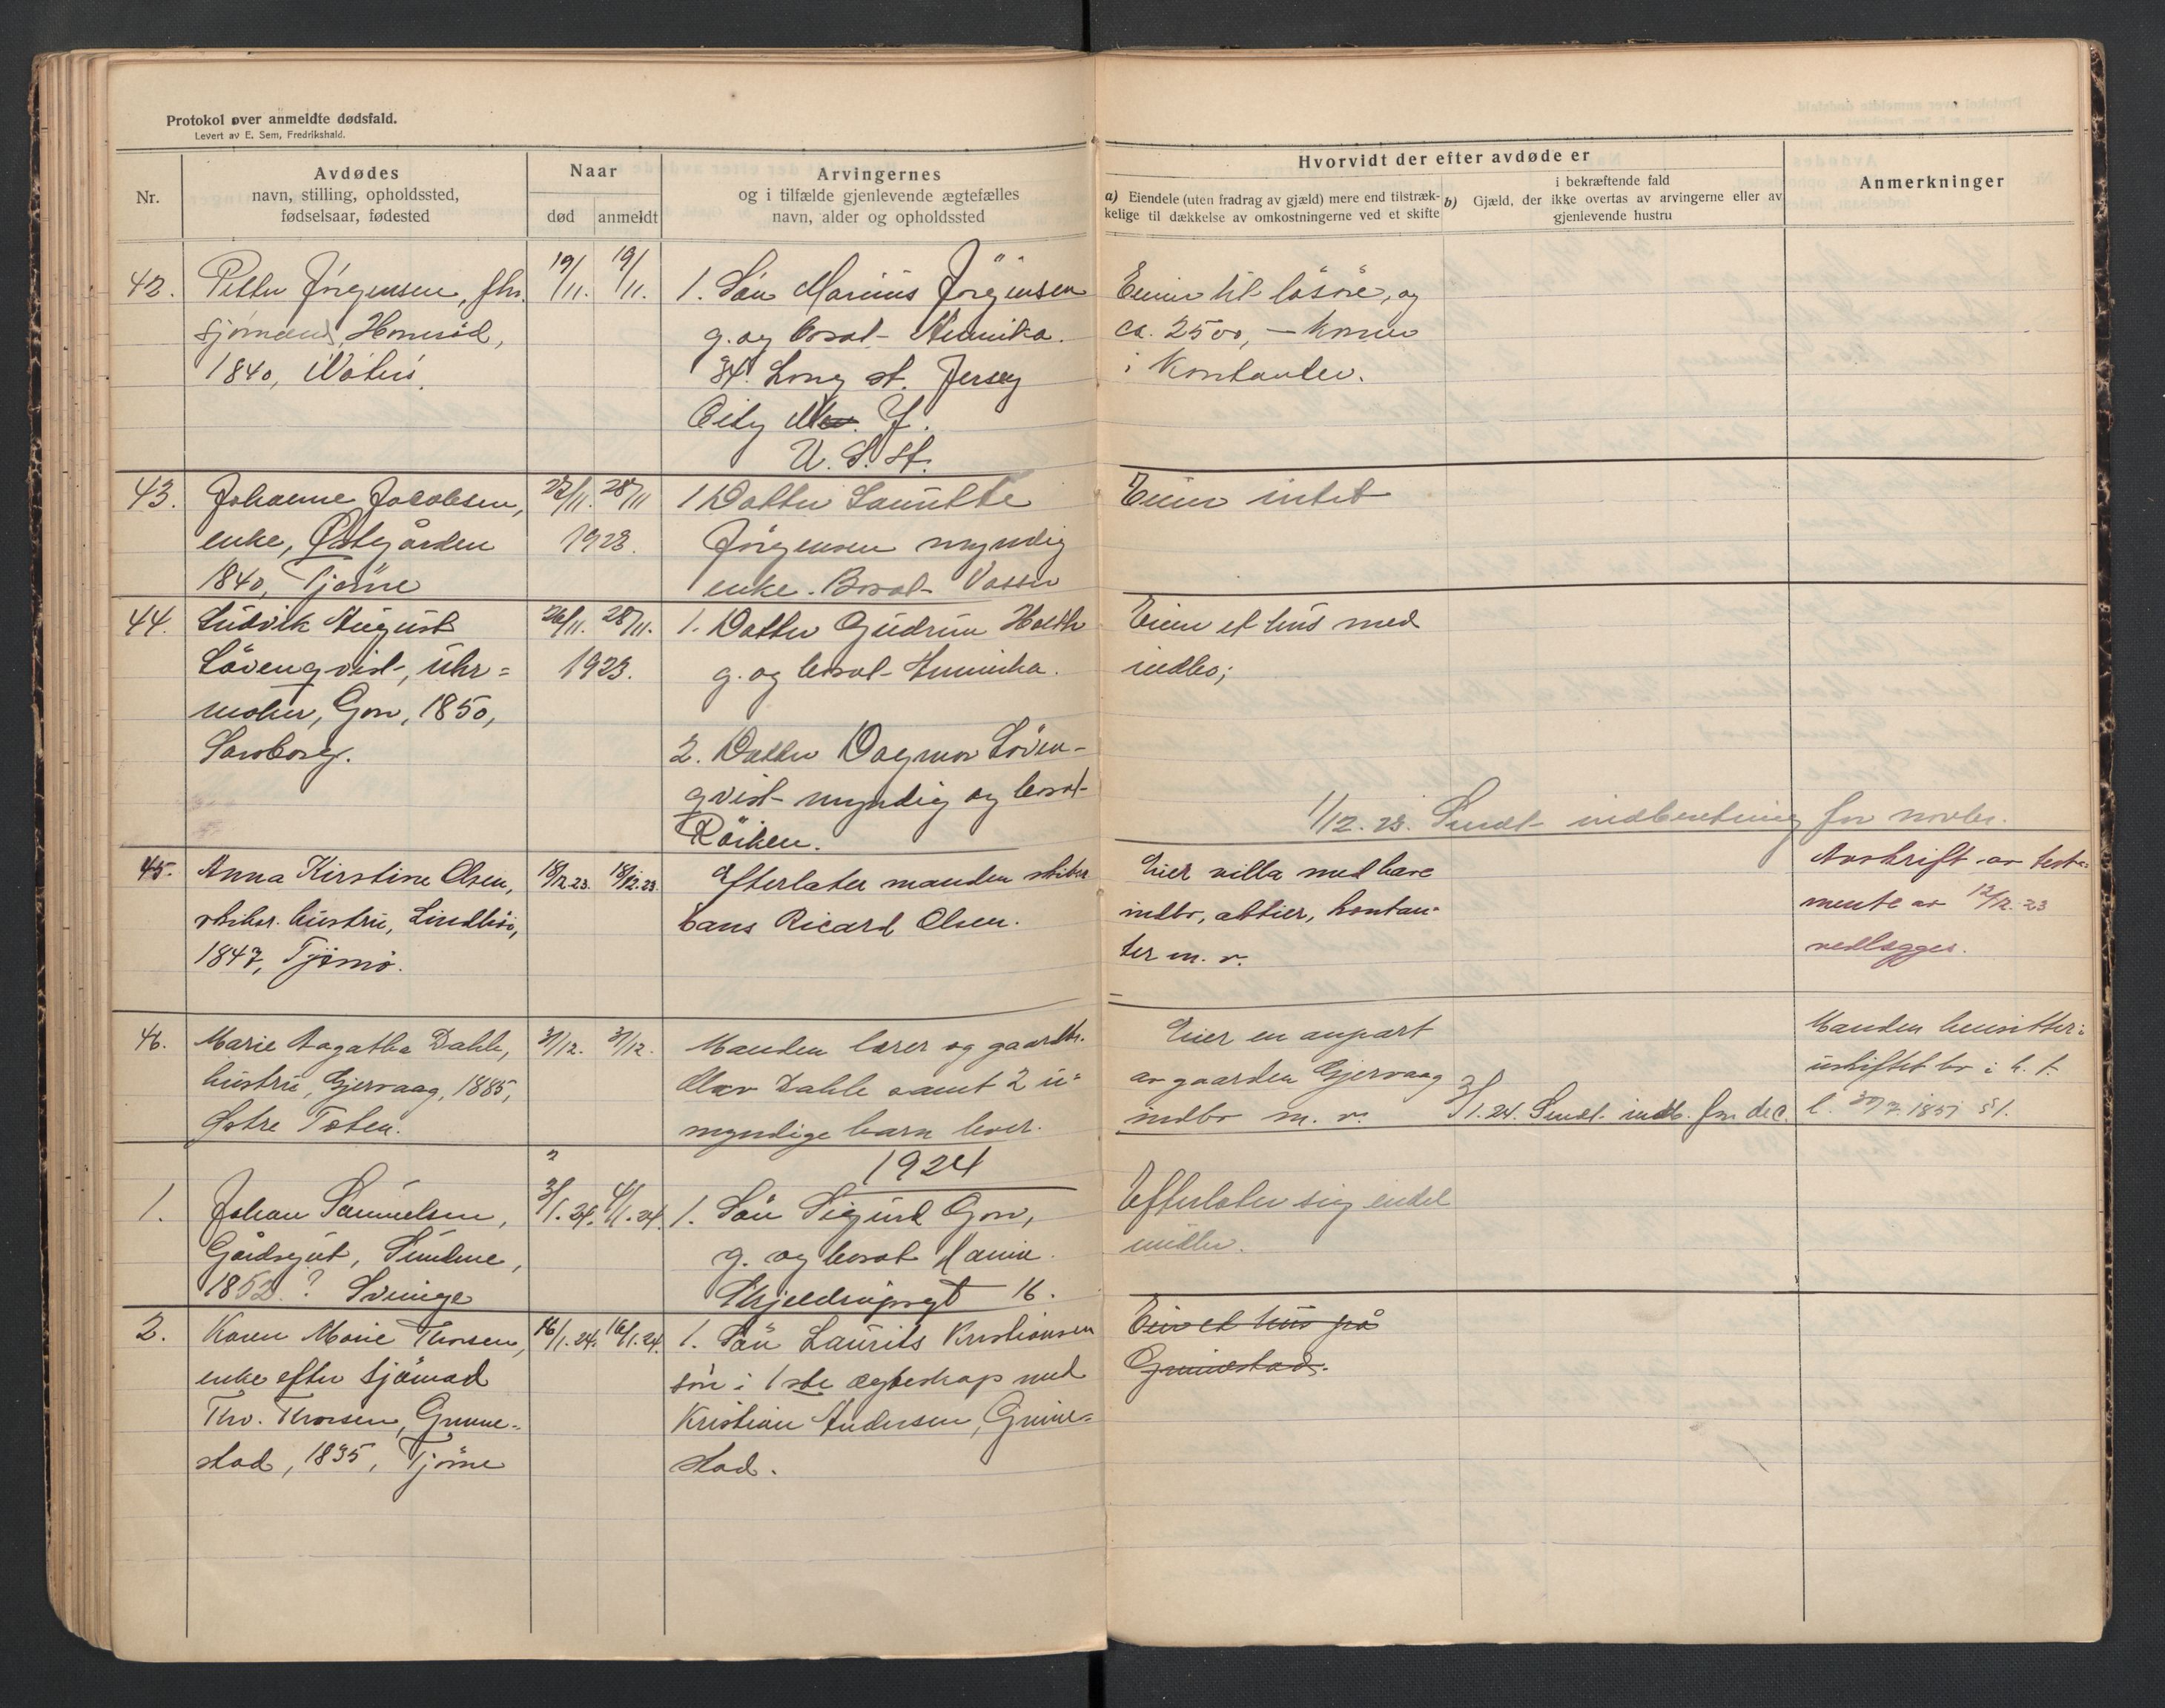 Protokol over anmeldte dødsfald.
Levert av E. Sem, Fredrikshald.
Nr.
Avdødes
navn, stilling, opholdssted,
fødselsaar, fødested
Naar
død
anmeldt
Arvingernes
og i tilfælde gjenlevende ægtefælles
navn, alder og opholdssted
Hvorvidt der efter avdøde er
a) Eiendele (uten fradrag av gjæld) mere end tilstræk-
kelige til dækkelse av omkostningerne ved et skifte
i bekræftende fald
b) Gjæld, der ikke overtas av arvingerne eller av
gjenlevende hustru
Anmerkninger
42.
Petter Jörgensen, fhv.
sjömand,
1840,
19/11.
19/11.
1. Sön Marius Jörgensen
g. og bosat Amerika.
34. Long st. Jersey
City J.
U. S. A.
Eier litt lösöre, og
ca. 2500,- kroner
i kontanter.
43.
Johanne Jacobsen,
enke, Østegården
1840, Tjøme
27/11. 28/11
1923.
1 Datter Laurette
Jörgensen myndig
enke. Bosat Vasser
Eier intet
44.
Ludvik August
Lövenqvist, uhr=
maker, Gon, 1850,
Sarpborg.
26/11. 28/11.
1923.
1. Datter Gudrun Holth
g. og bosat Amerika.
2. Datter Dagmar Löven-
qvist myndig og bosat
Röiken.
Eier et hus med
indbo;
1/12. 23. Sendt indberetning for novbr.
45.
Anna Kirstine Olsen,
skibsr. hustru,
1847, Tjömö.
18/12.23. 18/12.23.
Efterlater manden skibsr
Hans Ricard Olsen.
Eier villa med have
indbo, aktier, kontan=
ter m. v.
Avskrift av testa=
mente av 12/12.23
vedlægges.
46.
Marie Aagatha Dahle,
hustru, Gjervaag, 1885,
Østre Toten.
31/12. 31/12.
Manden lærer og gaardbr.
Olav Dahle samt 2 u=
myndige barn lever.
Eier en anpart
av gaarden Gjervaag
indbo m. v.
3/1.24. Sendt indb. for dec.
Manden hensitter i
uskiftet bo i h. t.
l. 30/7 1851 § 1.
1924
1.
Johan Samuelsen,
Gårdsgut, Sundene,
? Sverige
3/1.24. 4/1.24.
1. Sön Sigurd Gon,
g. og bosat
16.
Efterlater sig endel
midler.
2.
Karen Marie Thorsen,
enke efter sjömand
Tho. Thorsen, Grime-
stad, 1835, Tjöme
16/1.24. 16/1.24.
1. Sön Laurits Kristiansen
sön i 1ste ægteskap med
Kristian Andersen, Grime=
stad.
Eier et hus på
Grimestad.